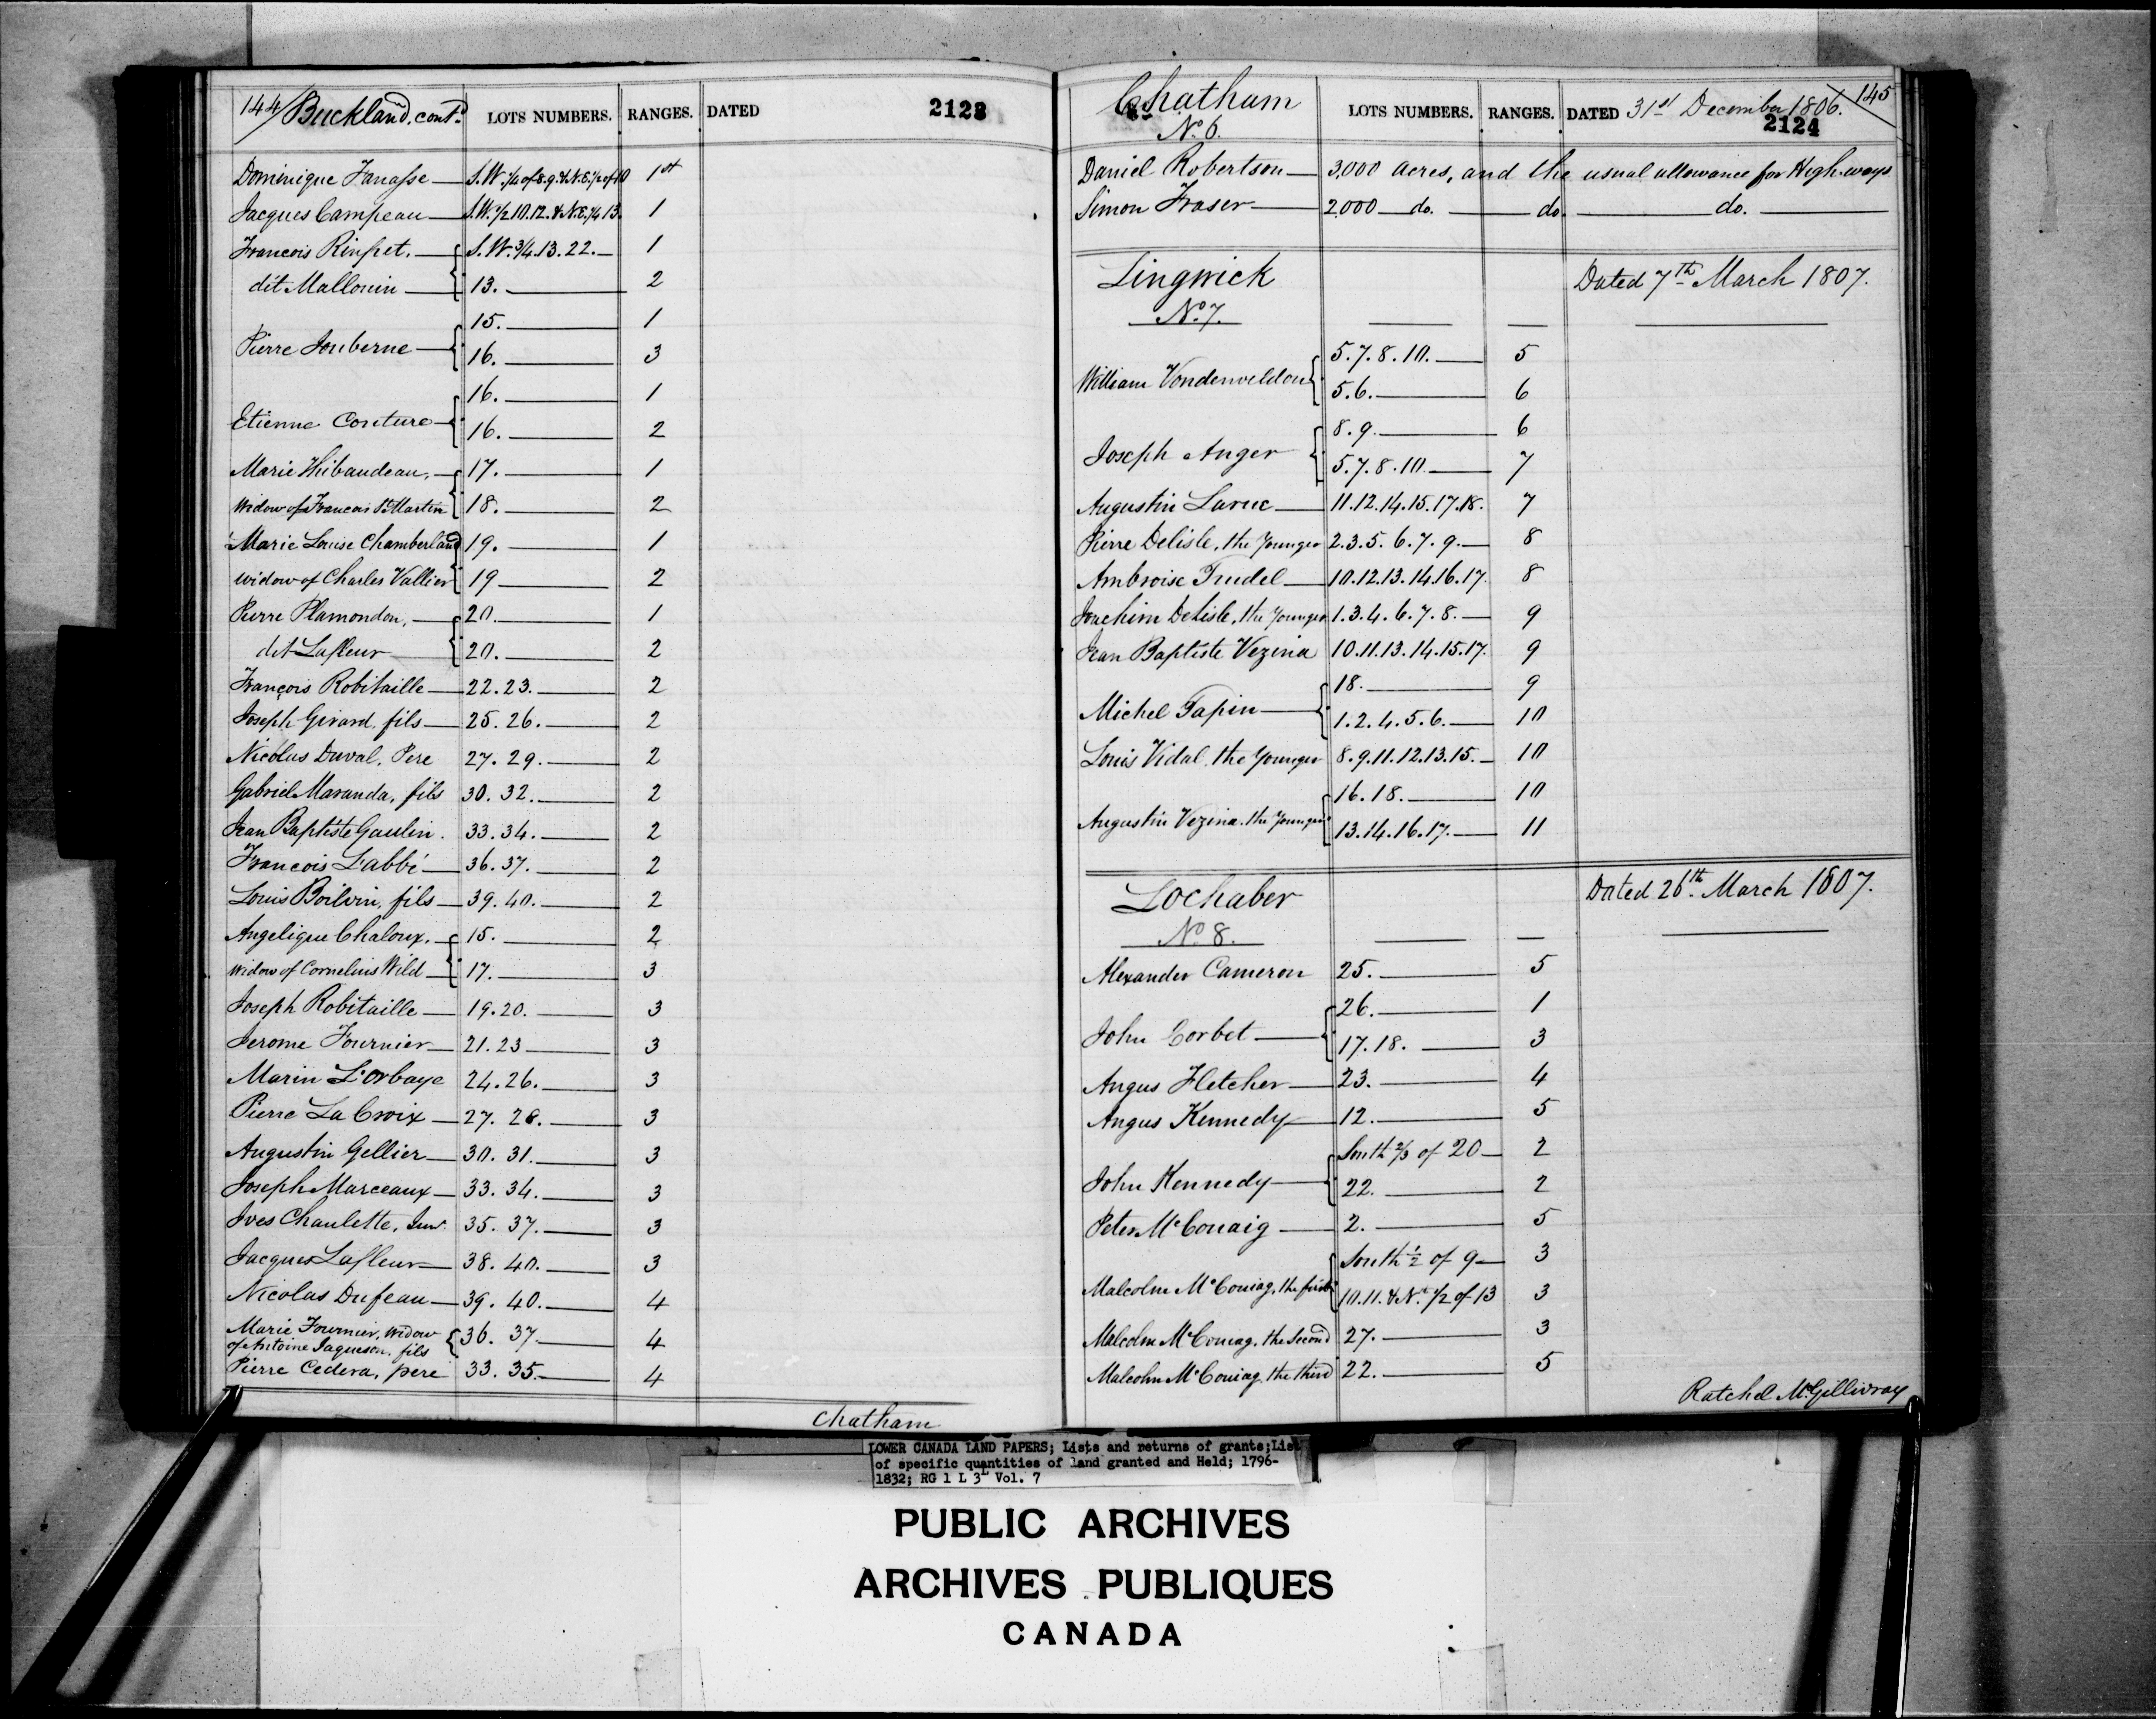 144 Buckland, cont.d LOTS NUMBERS. RANGES. DATED 2123
Dominique Janasse — S.W. 1/4 of 8. 9. & N.E. 1/2 of 10 1st
Jacques Campeau — S.W. 1/2 10. 12. & N.E. 1/4 13. 1
Francois Rinfret. — S.W. 3/4. 13. 22. — 1
dit Mallouin — 13. — 2
15. — 1
Pierre Jouberne — 16. — 3
16. — 1
Etienne Couture — 16. — 2
Marie Thibaudeau, — 17. — 1
Widow of Francois St Martin 18. — 2
Marie Louise Chamberland 19. — 1
widow of Charles Vallier 19 — 2
Pierre Plamondon, — 20. — 1
dit Lafleur 20. — 2
François Robitaille — 22. 23. — 2
Joseph Girard, fils — 25. 26. — 2
Nicolas Duval, Pere 27. 29. — 2
Gabriel Maranda, fils 30. 32. — 2
Jean Baptiste Gaulin. 33. 34. — 2
Francois Labbé — 36. 37. — 2
Louis Boilvin, fils — 39. 40. — 2
Angelique Chaloux. — 15. — 2
Widow of Cornelius Wild — 17. — 3
Joseph Robitaille — 19. 20. — 3
Jerome Fournier — 21. 23 — 3
Marin L'Orbaye 24. 26. — 3
Pierre La Croix — 27. 28. — 3
Augustin Gellier — 30. 31. — 3
Joseph Marceaux — 33. 34. — 3
Ives Chaulette, Junr. 35. 37. — 3
Jacques Lafleur — 38. 40. — 3
Nicolas Dufeau — 39. 40. — 4
Marie Fournier, Widow
of Antoine Jaqueson, fils 36. 37. — 4
Pierre Cedera, pere 33. 35. — 4
Chatham
Chatham LOTS NUMBERS. RANGES. DATED 31st December 1806. 145
No. 6. 2124
Daniel Robertson — 3,000 Acres, and the usual allowance for High-ways
Simon Fraser — 2,000 — do. — do. — do. —
Lingwick Dated 7th March 1807.
No. 7.
5. 7. 8. 10. — 5
William Vondenvelden 5. 6. — 6
8. 9. — 6
Joseph Anger 5. 7. 8. 10. — 7
Augustin Larue — 11. 12. 14. 15. 17. 18. 7
Pierre Delisle, the Younger 2. 3. 5. 6. 7. 9. — 8
Ambroise Trudel — 10. 12. 13. 14. 16. 17. 8
Joachim Delisle, the Younger 1. 3. 4. 6. 7. 8. — 9
Jean Baptiste Vezina 10. 11. 13. 14. 15. 17. 9
18. — 9
Michel Tapin — 1. 2. 4. 5. 6. — 10
Louis Vidal, the Younger 8. 9. 11. 12. 13. 15. — 10
16. 18. — 10
Augustin Vezina, the Younger 13. 14. 16. 17. — 11
Lochaber Dated 26th March 1807.
No. 8.
Alexander Cameron 25. — 5
26. — 1
John Corbet — 17. 18. — 3
Angus Fletcher — 23. — 4
Angus Kennedy — 12. — 5
South 2/3 of 20 — 2
John Kennedy — 22. — 2
Peter McCouaig — 2. — 5
South 1/2 of 9 — 3
Malcolm McCouiag, the first 10. 11. & N. 1/2 of 13 3
Malcolm McCouiag, the Second 27. — 3
Malcolm McCouiag, the third 22. — 5
Ratchel McGillivray
LOWER CANADA LAND PAPERS; Lists and returns of grants; List
of specific quantities of land granted and Held; 1796-
1832; RG 1 L 3L Vol. 7
PUBLIC ARCHIVES
ARCHIVES PUBLIQUES
CANADA